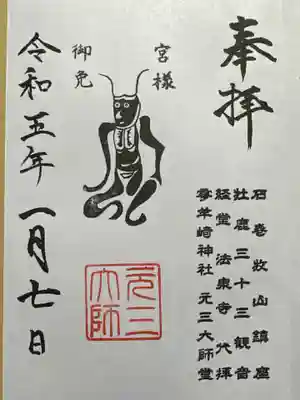 奉拝
石巻牧山鎮座
牡鹿三十三観音
経堂法泉寺大拝
零羊崎神社元三大師堂
宮様
御免
元三
大師
令和五年一月七日